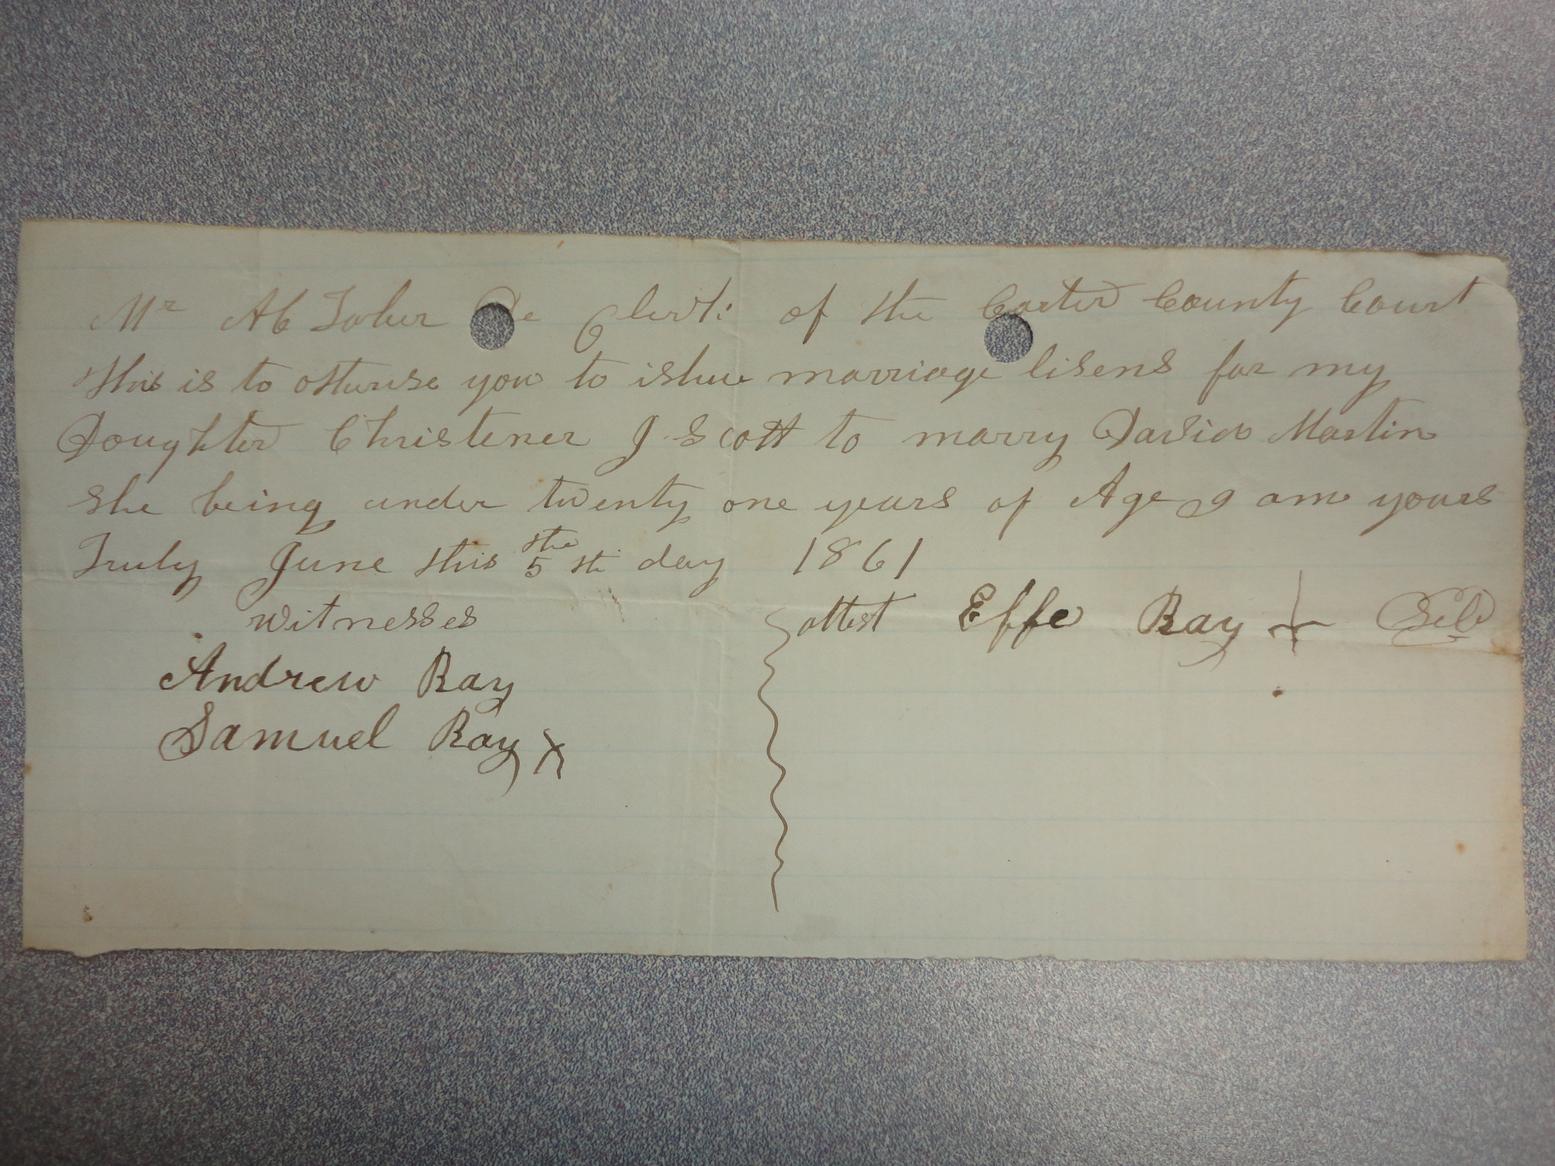 Mr Ab Toler De Clerk of the Carter County Court
this is to otturise you to ishue marriage lisens for my
Doughter Christener J Scott to marry David Martin
she being under twenty one years of Age I am yours
Truly June this the 5 th day 1861
witnesses attest Effe Ray +
Andrew Ray
Samuel Ray X